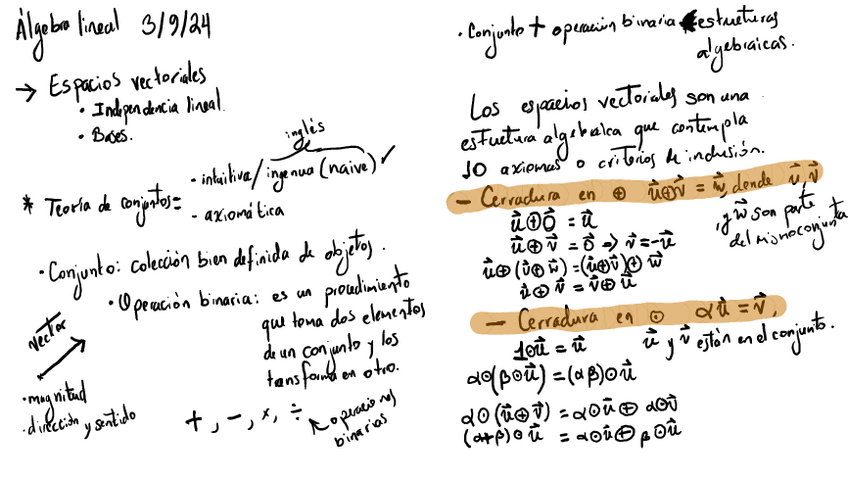 Álgebra lineal 3/9/24
→ Espacios vectoriales
• Independencia lineal.
• Bases.
inglés
* Teoría de conjuntos =
- intuitiva / ingenua (naive) ✓
- axiomática
• Conjunto: colección bien definida de objetos.
• Operación binaria: es un procedimiento
que toma dos elementos
de un conjunto y los
transforma en otro.
vector
• magnitud
• dirección y sentido
+, -, ×, ÷
operaciones
binarias
• Conjunto + operación binaria estructuras
algebraicas.
Los espacios vectoriales son una
estructura algebraica que contempla
10 axiomas o criterios de inclusión.
- Cerradura en ⊕ u⃗⊕v⃗ = w⃗, donde u⃗, v⃗
y w⃗ son parte
del mismo conjunto
u⃗⊕0⃗ = u⃗
u⃗⊕v⃗ = 0⃗ ⇒ v⃗ = -u⃗
u⃗⊕(v⃗⊕w⃗) = (u⃗⊕v⃗)⊕w⃗
u⃗⊕v⃗ = v⃗⊕u⃗
- Cerradura en ⊙ αu⃗ = v⃗,
u⃗ y v⃗ están en el conjunto.
1⊙u⃗ = u⃗
α⊙(β⊙u⃗) = (αβ)⊙u⃗
α⊙(u⃗⊕v⃗) = α⊙u⃗ ⊕ α⊙v⃗
(α+β)⊙u⃗ = α⊙u⃗ ⊕ β⊙u⃗